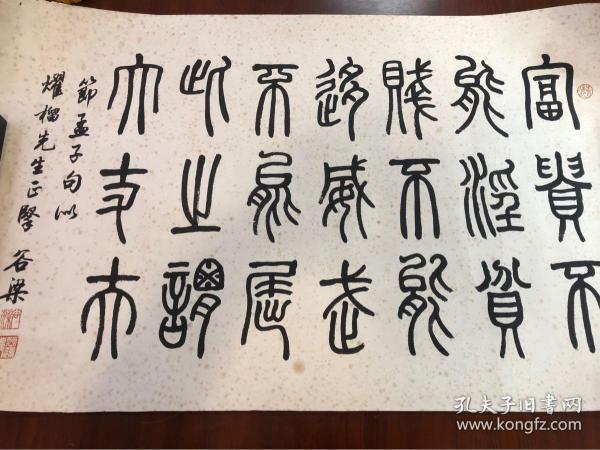 富貴不
能淫貧
賤不能
移威武
不能屈
此之謂
大丈夫
節孟子句以
燿榴先生正 谷梁
孔夫子旧书网
www.kongfz.com